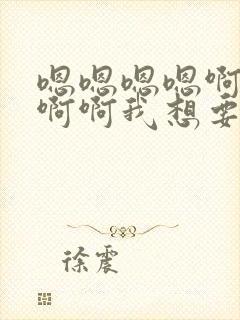 嗯嗯嗯嗯啊
啊啊我想要
徐震